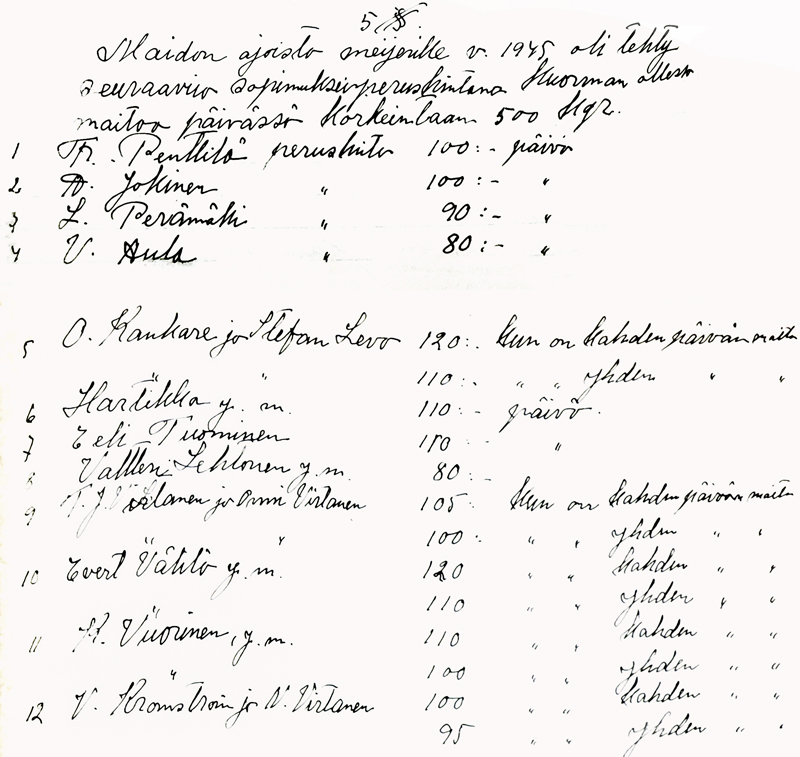 5 §.
Maidon ajoista meijerille v. 1945 oli tehty
seuraavia sopimuksia peruskintana Kuorman ollessa
maitoa päivässä Korkeintaan 500 Kgr.
1 Fr. Penttilä peruskinta 100:- päivä
2 A. Jokinen " 100:- "
3 L. Perämäki " 90:- "
4 V. Aula " 80:- "
5 O. Kankare ja Stefan Levo 120:. Kun on Kahden päivän maito
" " 110:. " " yhden " "
6 Hartikka y. m. 110:- päivä.
7 Eeli Tuominen 110 "
8 Valtteri Lehtonen y. m. 80:-
9 Virtanen ja Onni Virtanen 105: Kun on Kahden päivän maito
" " 100: " " yhden " "
10 Evert Vähtö y. m. 120 " " Kahden " "
110 " " yhden " "
11 K. Vuorinen, y. m. 110 " " Kahden " "
100 " " yhden " "
12 V. Kromström ja V. Virtanen 100 " " Kahden " "
95 " " yhden " "